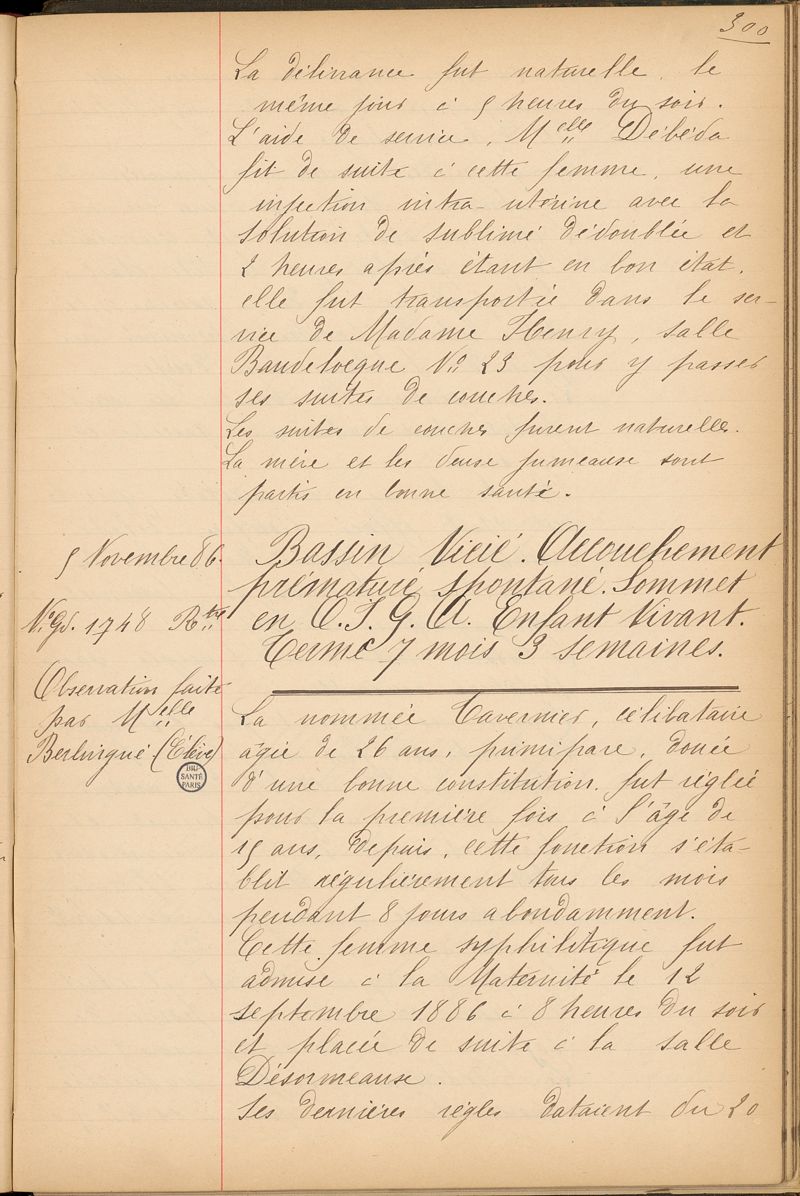 300
La délivrance fut naturelle, le
même jour à 5 heures du soir.
L'aide de service, Melle Débéda
fit de suite à cette femme, une
injection intra-utérine avec la
solution de sublimé dédoublée et
2 heures après étant en bon état,
elle fut transportée dans le ser-
vice de Madame Henry, salle
Baudelocque No 23 pour y passer
ses suites de couches.
Les suites de couches furent naturelles.
La mère et les deux jumeaux sont
partis en bonne santé.
5 Novembre 86.
Bassin Vicié. Accouchement
prématuré spontané. Sommet
No Gd. 1748 Rtre
en O.I.G.A. Enfant Vivant.
Terme 7 mois 3 semaines.
Observation faite
par Melle
Berlingué (Elève)
BIU
SANTÉ
PARIS
La nommée Tavernier, célibataire
âgée de 26 ans, primipare, douée
d'une bonne constitution, fut réglée
pour la première fois à l'âge de
15 ans, depuis, cette fonction s'éta-
blit régulièrement tous les mois
pendant 8 jours abondamment.
Cette femme syphilitique fut
admise à la Maternité le 12
septembre 1886 à 8 heures du soir
et placée de suite à la salle
Désormeaux.
Ses dernières règles dataient du 20